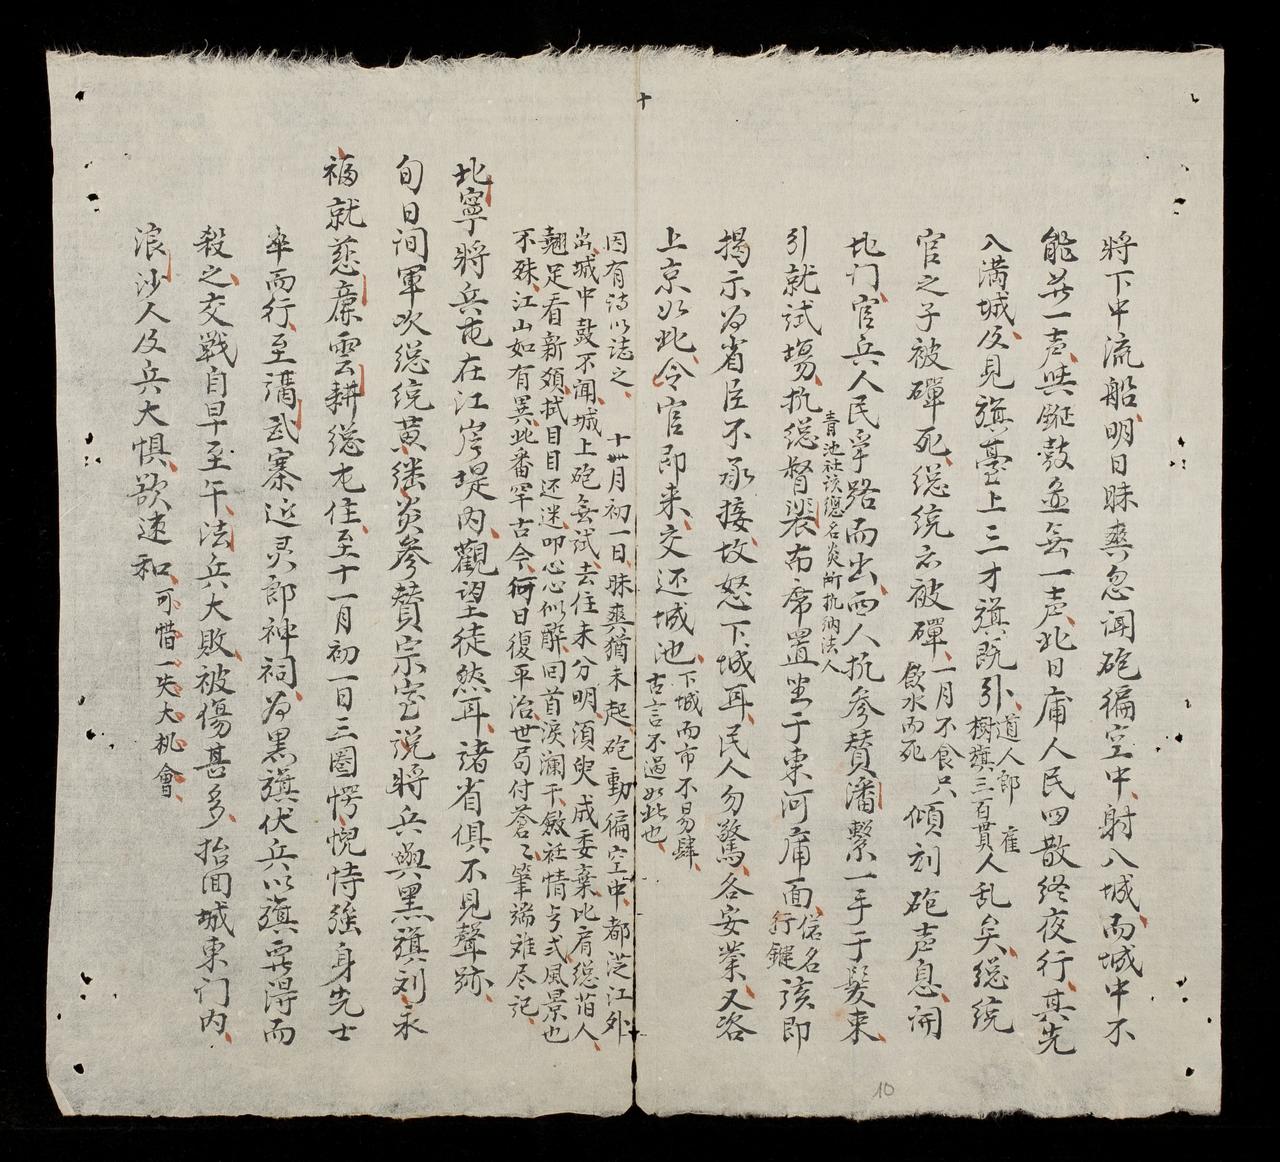 將下中流船明日昧爽忽闻砲徧空中射入城而城中不
能共一声哄鉦鼓並無一声北日庸人民四散终夜行其先
入满城反見旗臺上三才旗既引道人郎 崔樹旗三百貫人乱矣総统
官之子被磾死総统亦被磾一月不食只飲水而死傾刻砲声息闭
北门官兵人民争路而出西人抗参赞潘繫一手于髮束
引就試場抗総督裴布席置坐于東河庸面信名行鍵該即
青池社該總名炎所抗纳法人
揭示为省臣不承接故怒下城耳民人勿驚各安業又咨
上京如此令官即来交还城池下城而市不易肆古言不過如此也
因有詩以誌之 十卅月初一日昧爽猶未起砲動徧空中都涩江外
出城中鼓不闻城上砲無試去住未分明須臾成委棄比肩総笛人
翹足看新須拭目目还迷叩心心似醉回首淚澜干斂衽情与式風景也
不殊江山如有異此番罕古今何日復平治世局付蒼〻筆端难尽記
北寧將兵屯在江岸堤內觀望徒然耳諸省俱不見聲跡
旬日间軍次総统黄継炎参贊宗室说將兵與黑旗刘永
福就慈廉雲耕総屯住至十一月初一日三圈愕怳恃強身先士
卒而行至講武寨近灵郎神祠为黑旗伏兵以旗要得而
殺之交戰自早至午法兵大敗被傷甚多抬囬城東门内
浪沙人及兵大惧欲速和可惜一失大机會
10